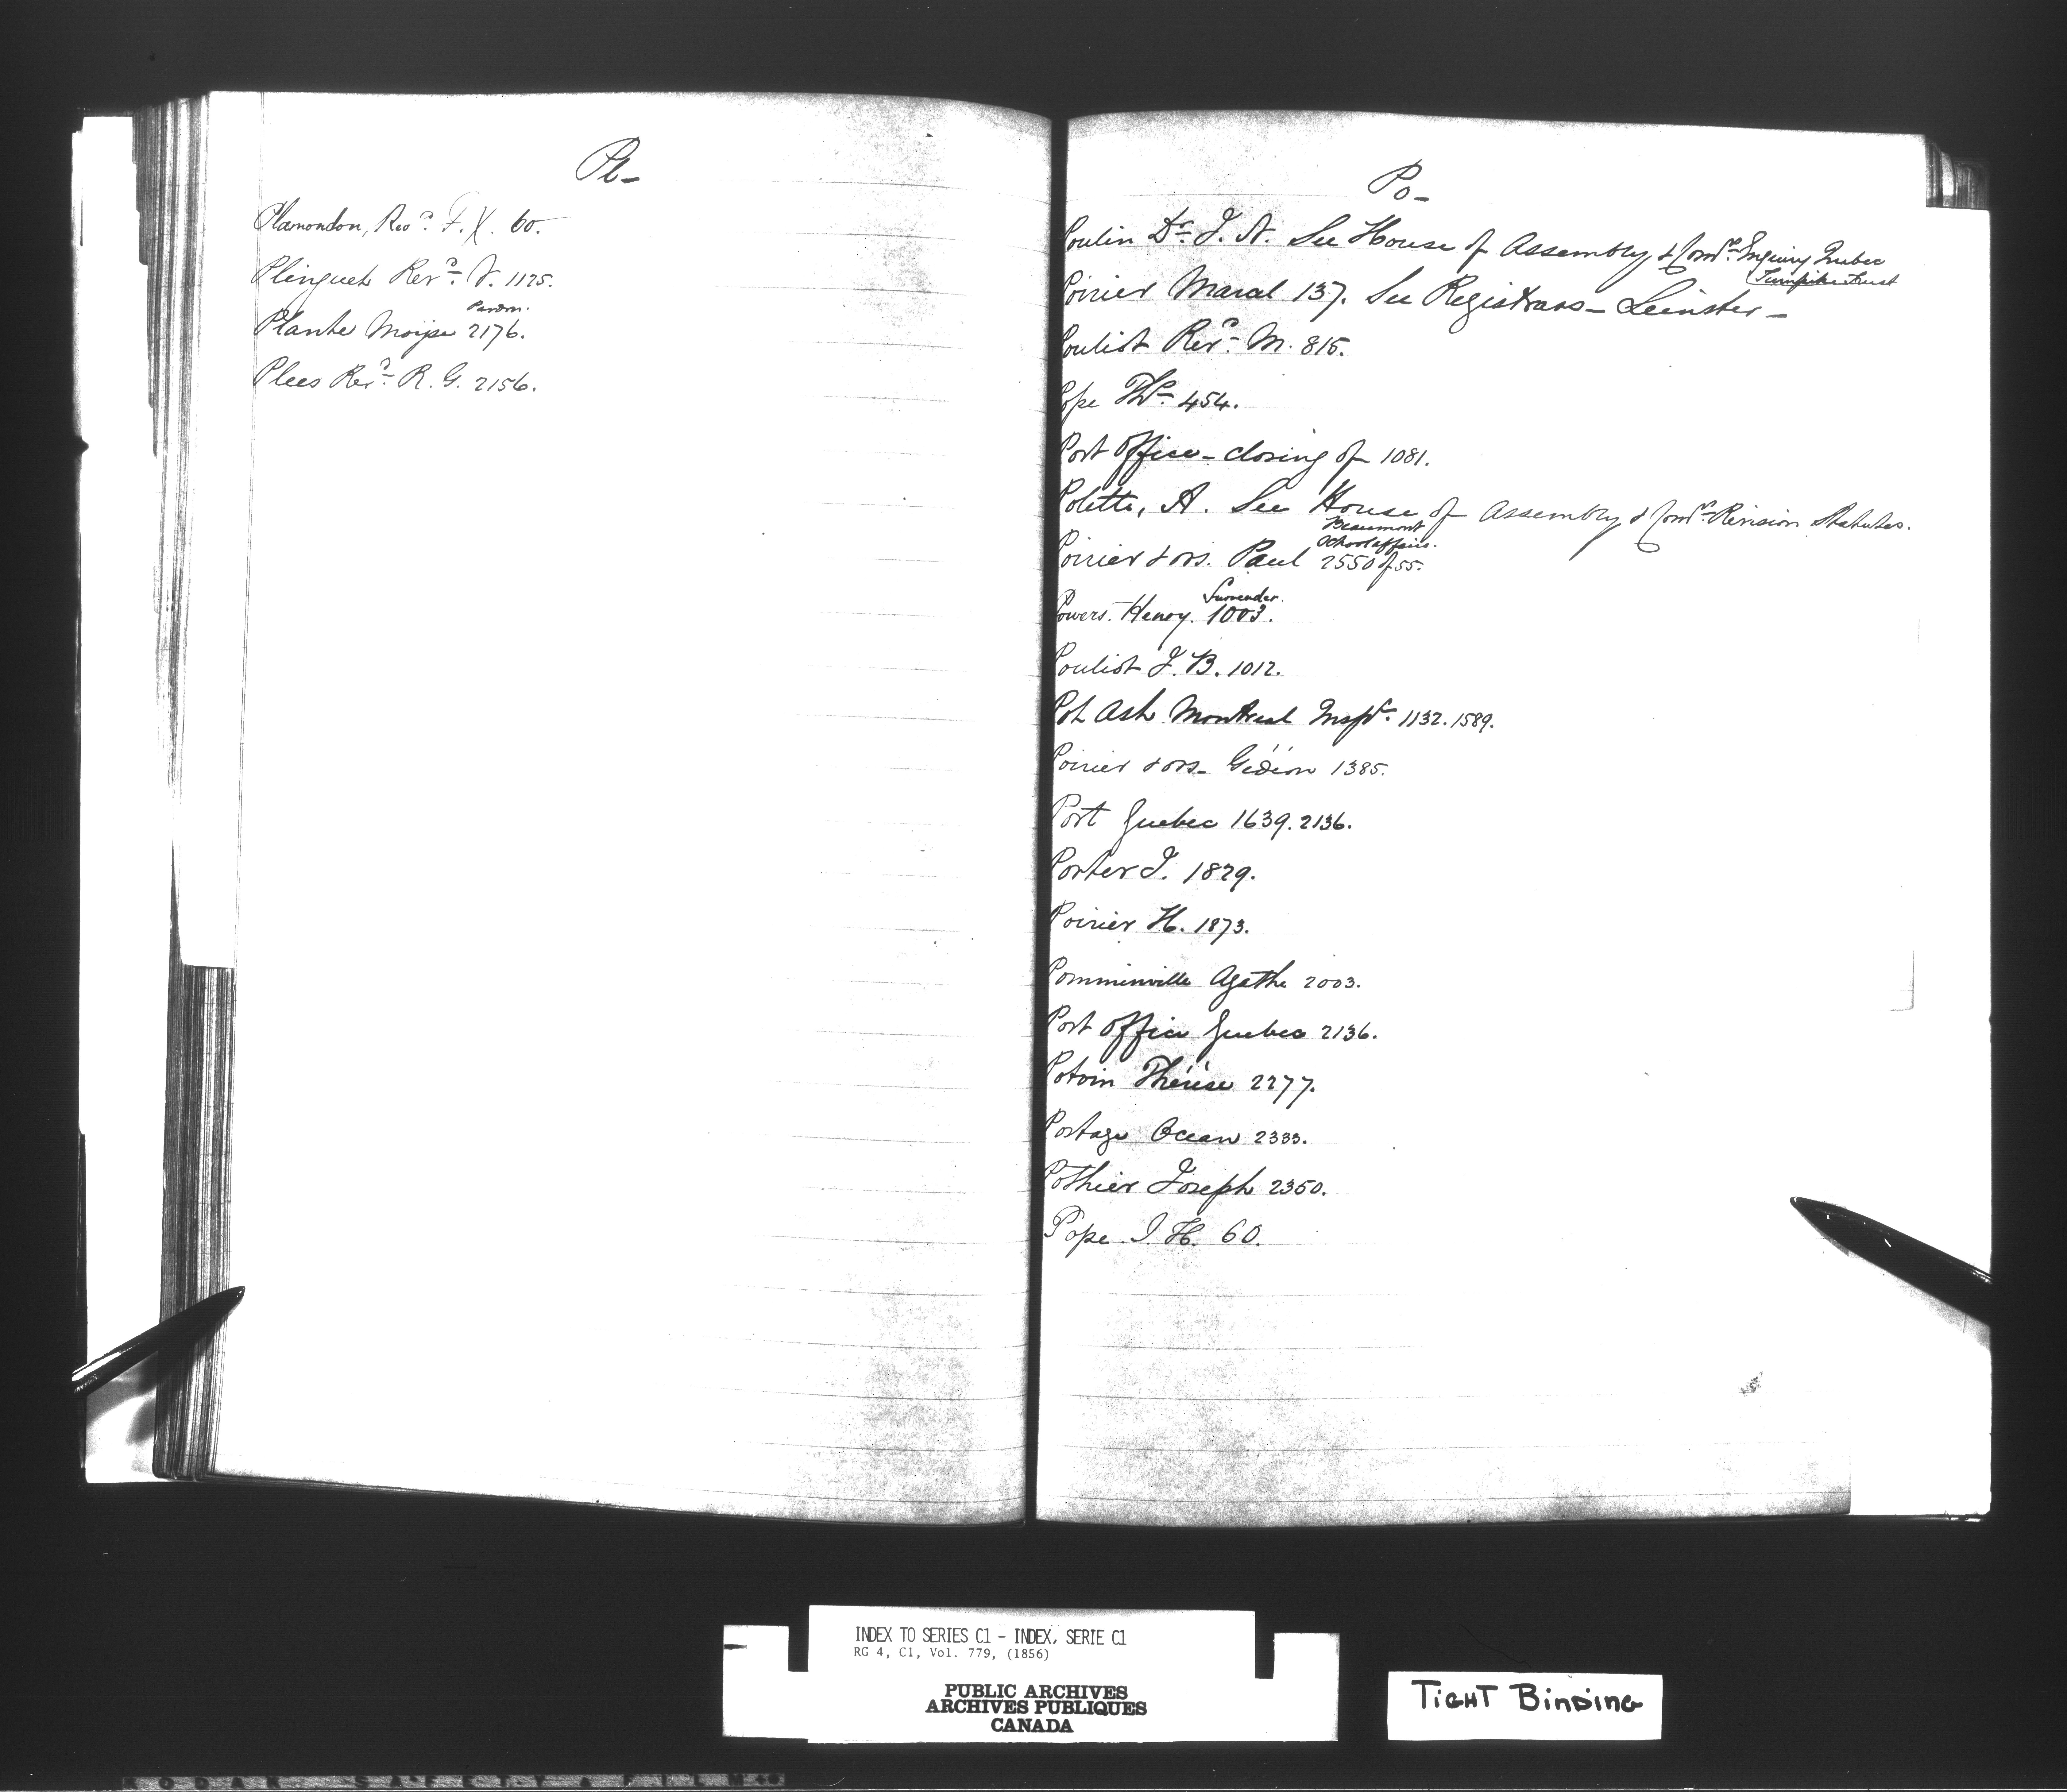 Pl-
Plamondon, Revd. F. X. 60.
Plinguet Revd. V. 1125.
Pardon.
Plante Moïse 2176.
Plees Revd. R. G. 2156.
Po-
Poulin Dr. J. A. See House of Assembly & Comrs. Inquiry Quebec
Turnpike Trust
Poirier Maral 137. See Registrars - Leinster -
Pouliot Revd. M. 815.
Pope Ths. 454.
Port Office - closing of 1081.
Polette, A. See House of Assembly & Comrs. Revision Statutes.
Beaumont
School affairs.
Poirier & ors. Paul 2550 of 55.
Surrender.
Powers. Henry. 1003.
Pouliot J. B. 1012.
Pot Ash Montreal Inspr. 1132. 1589.
Poirier & ors - Gédéon 1385.
Port Quebec 1639. 2136.
Porter J. 1829.
Poirier H. 1873.
Pomminville Agathe 2003.
Post Office Quebec 2136.
Potvin Thérèse 2277.
Postage Ocean 2333.
Pothier Joseph 2350.
Pope. J. H. 60.
INDEX TO SERIES C1 - INDEX, SERIE C1
RG 4, C1, Vol. 779, (1856)
PUBLIC ARCHIVES
ARCHIVES PUBLIQUES
CANADA
TIGHT BINDING
KODAK SAFETY FILM